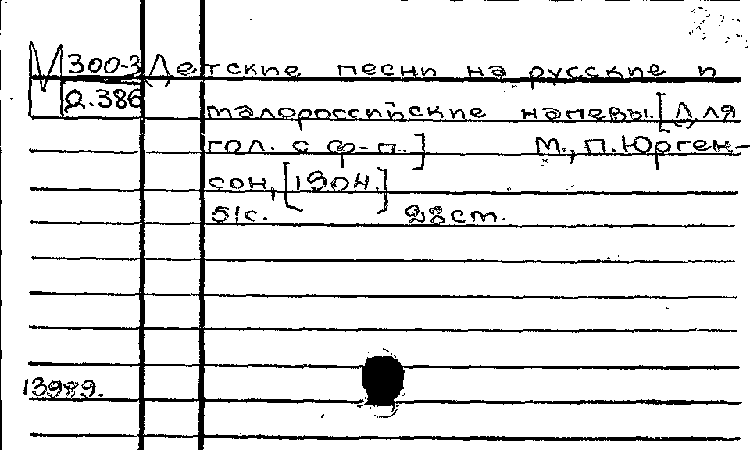 М 300-3 Детские песни на русские и
2.386 малороссийские напевы. [Для
гол. с ф-п.] М., П. Юрген-
сон, [1904.]
51с. 28 см.
13989.